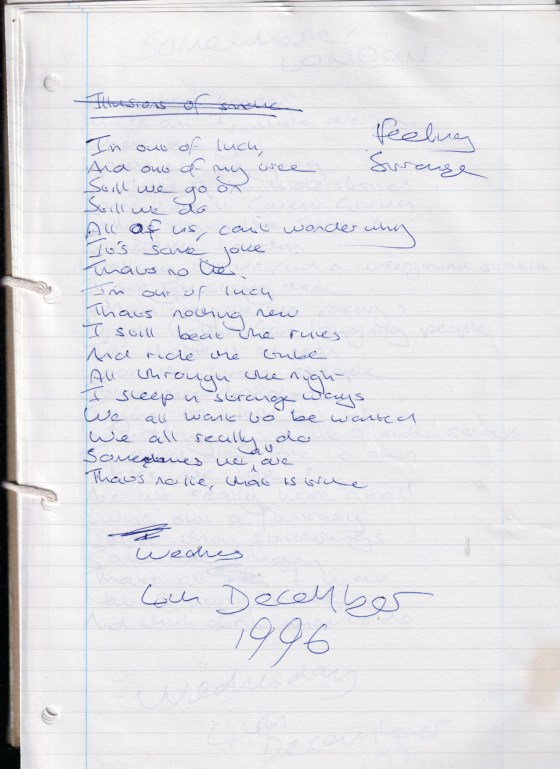 Illusions of smoke
Feeling
Strange
Im out of luck,
And out of my tree
Still we go on
Still we do
All of us, cant wonder why
Its some joke
Thats no lie.
Im out of luck
Thats nothing new
I still beat the rules
And ride the tube
All through the night
I sleep in strange ways
We all want to be wanted
We all really do
Sometimes we all are
Thats no lie, that is true
Wednes
4th December
1996